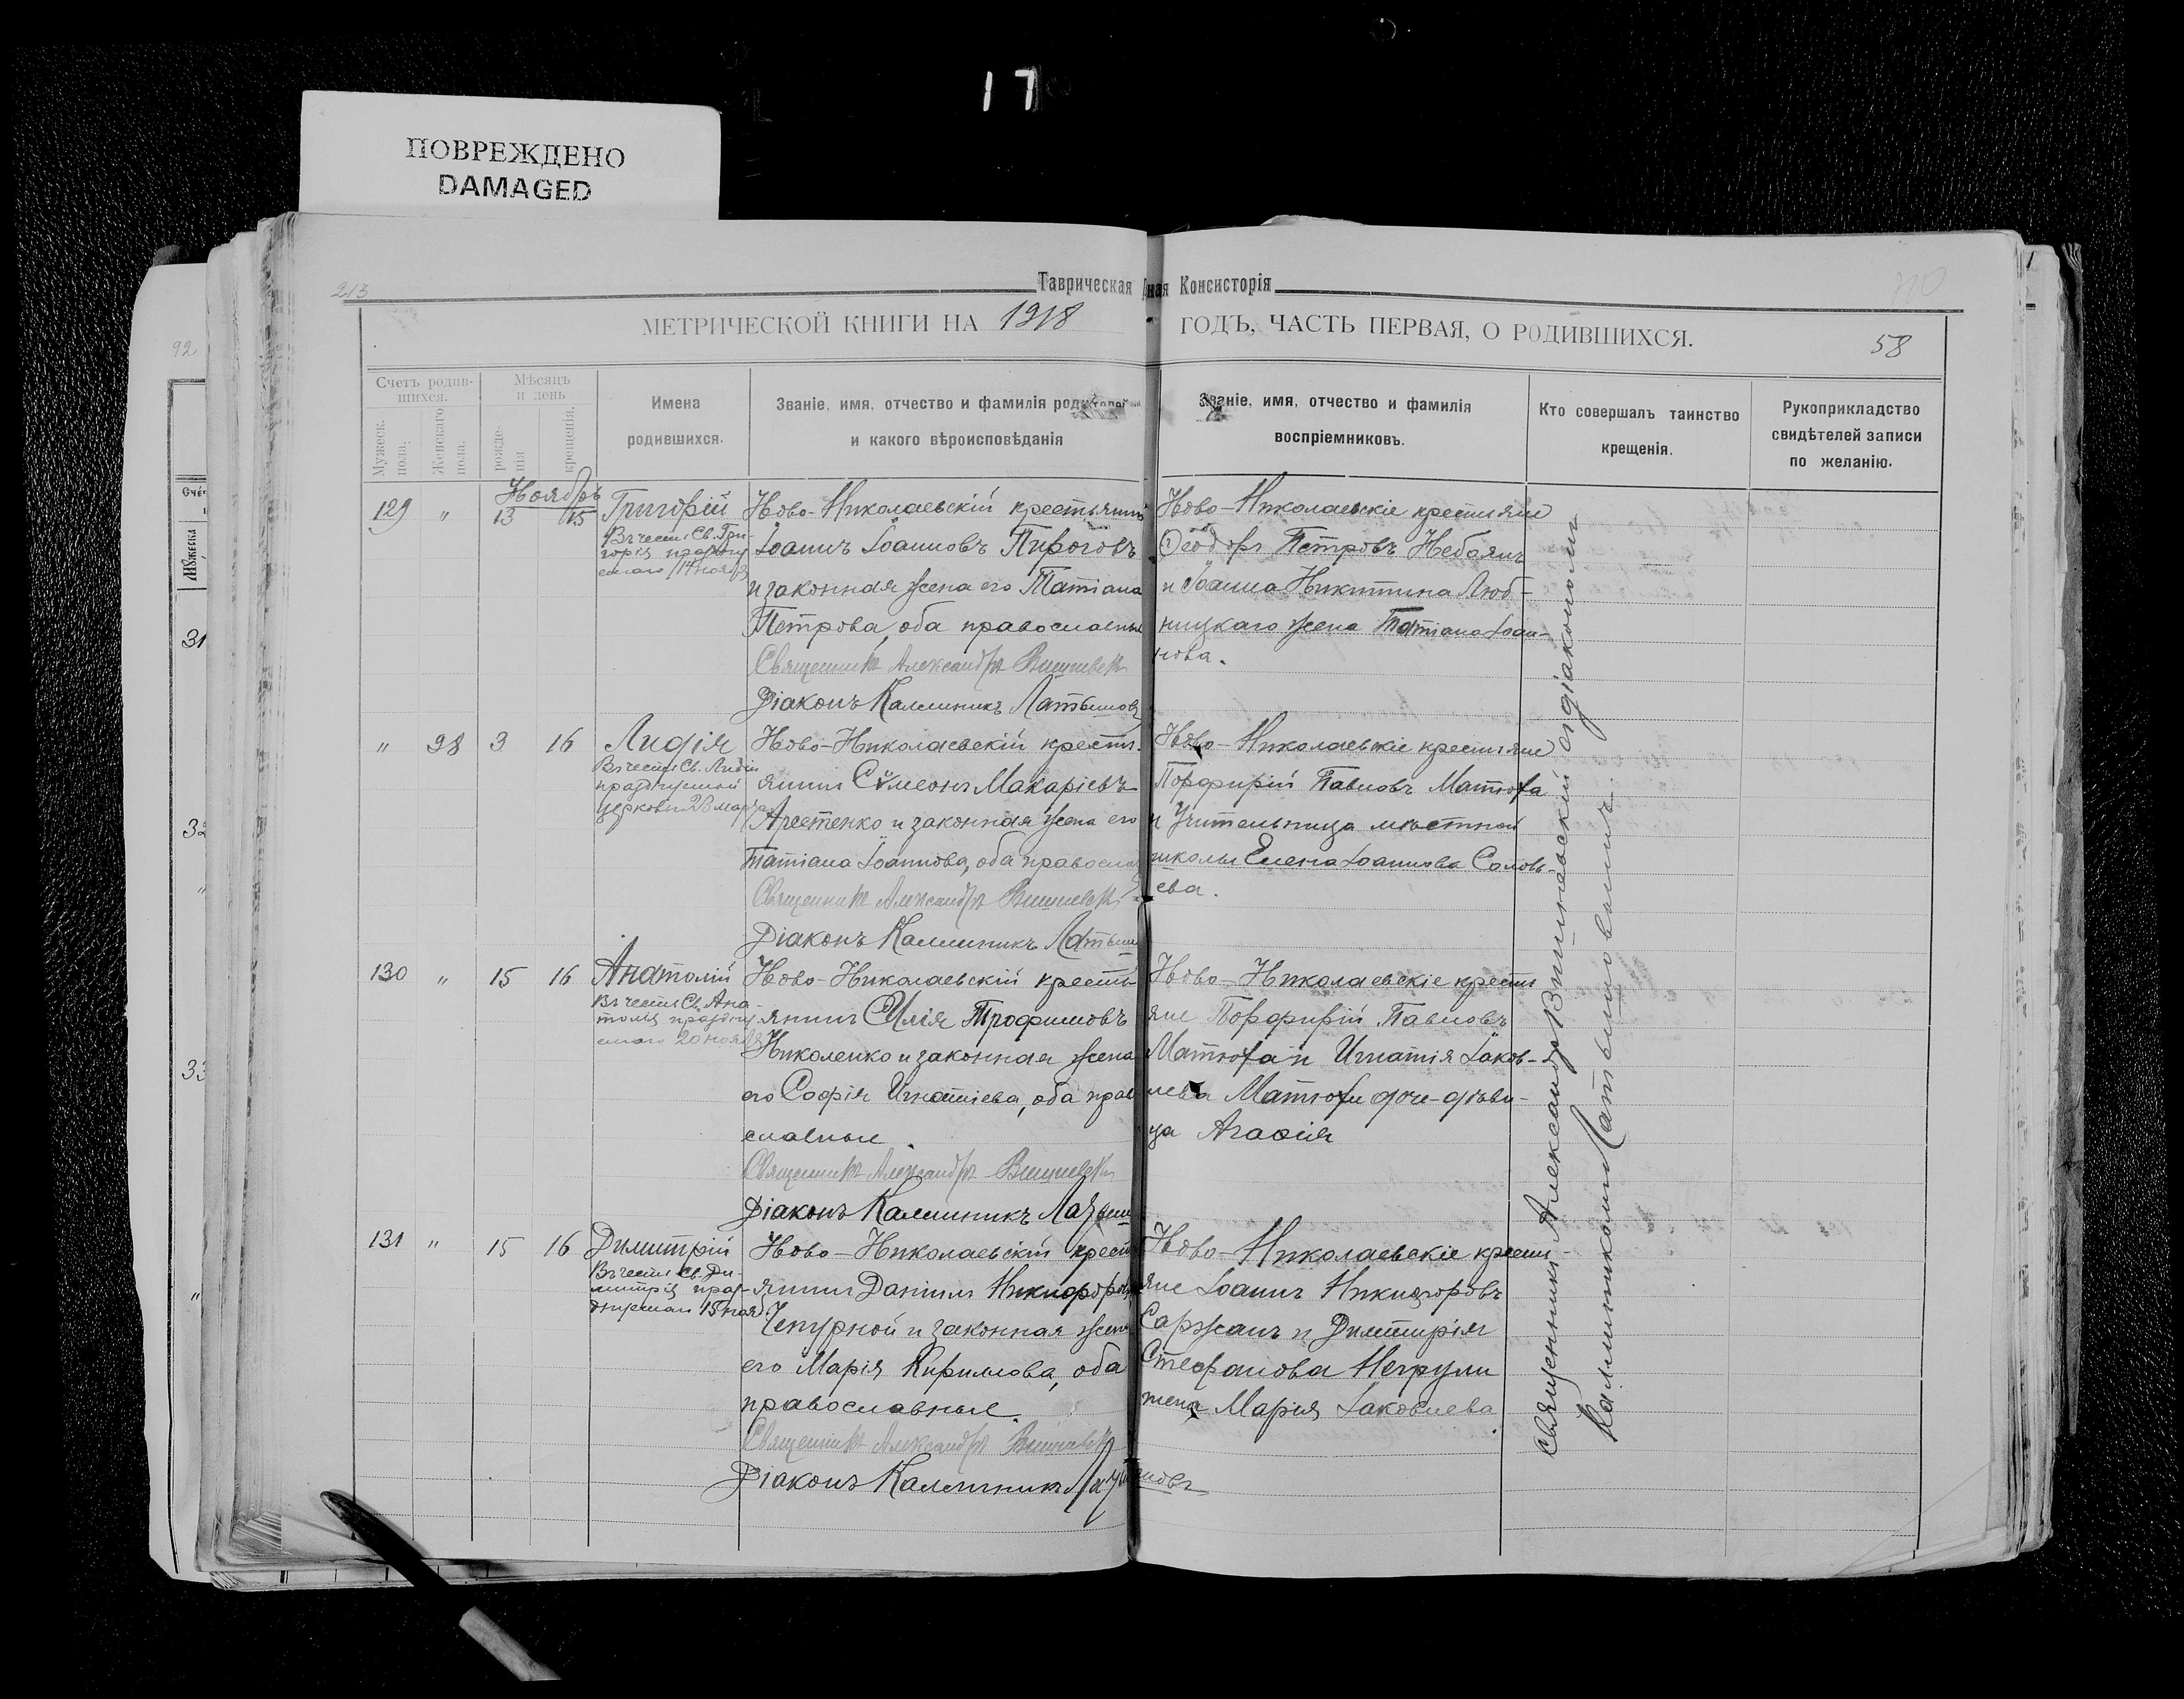 17
ПОВРЕЖДЕНО
DAMAGED
213
Таврическая ная Консисторія
МЕТРИЧЕСКОЙ КНИГИ НА 1918 ГОДЪ, ЧАСТЬ ПЕРВАЯ, О РОДИВШИХСЯ.
58
92
Счетъ родив-
шихся.
Мужеск.
пола.
Женскаго
пола.
Мѣсяцъ
и день
рожде-
нія
крещенія.
Имена
родившихся.
Званіе, имя, отчество и фамилія родителей
и какого вѣроисповѣданія
Званіе, имя, отчество и фамилія
воспріемниковъ.
Кто совершалъ таинство
крещенія.
Рукоприкладство
свидѣтелей записи
по желанію.
Ноябрь
129 " 13 15 Григорій
Въ честь Св. Гри-
горія праздну
емаго 14 ноября
Ново-Николаевскій крестьянинъ
Іоаннъ Іоанновъ Пироговъ
и законная жена его Татіана
Петрова, оба православные
Священникъ Александръ Вишневск
Діаконъ Каллиникъ Латышовъ
Ново-Николаевскіе крестьяне
Ѳеодоръ Петровъ Небаянъ
и Іоанна Никитина Люб-
ницкаго жена Татіана Іоан-
нова.
" 98 3 16 Лидія
Въ честь Св. Лидіи
празднуемой
церковью 23 марта
Ново-Николаевскій кресть-
янинъ Сѵмеонъ Макаріевъ
Арестенко и законная жена его
Татіана Іоаннова, оба православ
Священникъ Александръ Вишневск
Діаконъ Каллиникъ Латыш
Ново-Николаевскіе крестьяне
Порфирій Павловъ Матюха
и Учительница мѣстной
школы Елена Іоаннова Соловь-
ева.
130 " 15 16 Анатолій
Въ честь Св. Ана-
толія праздну
емаго 20 ноября
Ново-Николаевскій кресть-
янинъ Илія Трофимовъ
Николенко и законная жена
его Софія Игнатіева, оба прав
славные.
Священникъ Александръ Вишневск
Діаконъ Каллиникъ Латыш
Ново-Николаевскіе кресть
яне Порфирій Павловъ
Матюха и Игнатія Іаков-
лева Матюхи дочь-дѣви-
ца Агаѳія
131 " 15 16 Димитрій
Въ честь Св. Ди-
митрія праз-
днуемаго 15 нояб
Ново-Николаевскій кресть
янинъ Даніилъ Никифоров
Чепурной и законная жена
его Марія Кириллова, оба
православные.
Священникъ Александръ Вишневск
Діаконъ Каллиникъ Латышовъ
Ново-Николаевскіе кресть-
яне Іоаннъ Никифоровъ
Саржанъ и Димитрія
Стефанова Негрули
жена Марія Іаковлева.
Священникъ Александръ Вишневскій съ діакономъ
Каллиникомъ Латышовымъ.
31
32
33